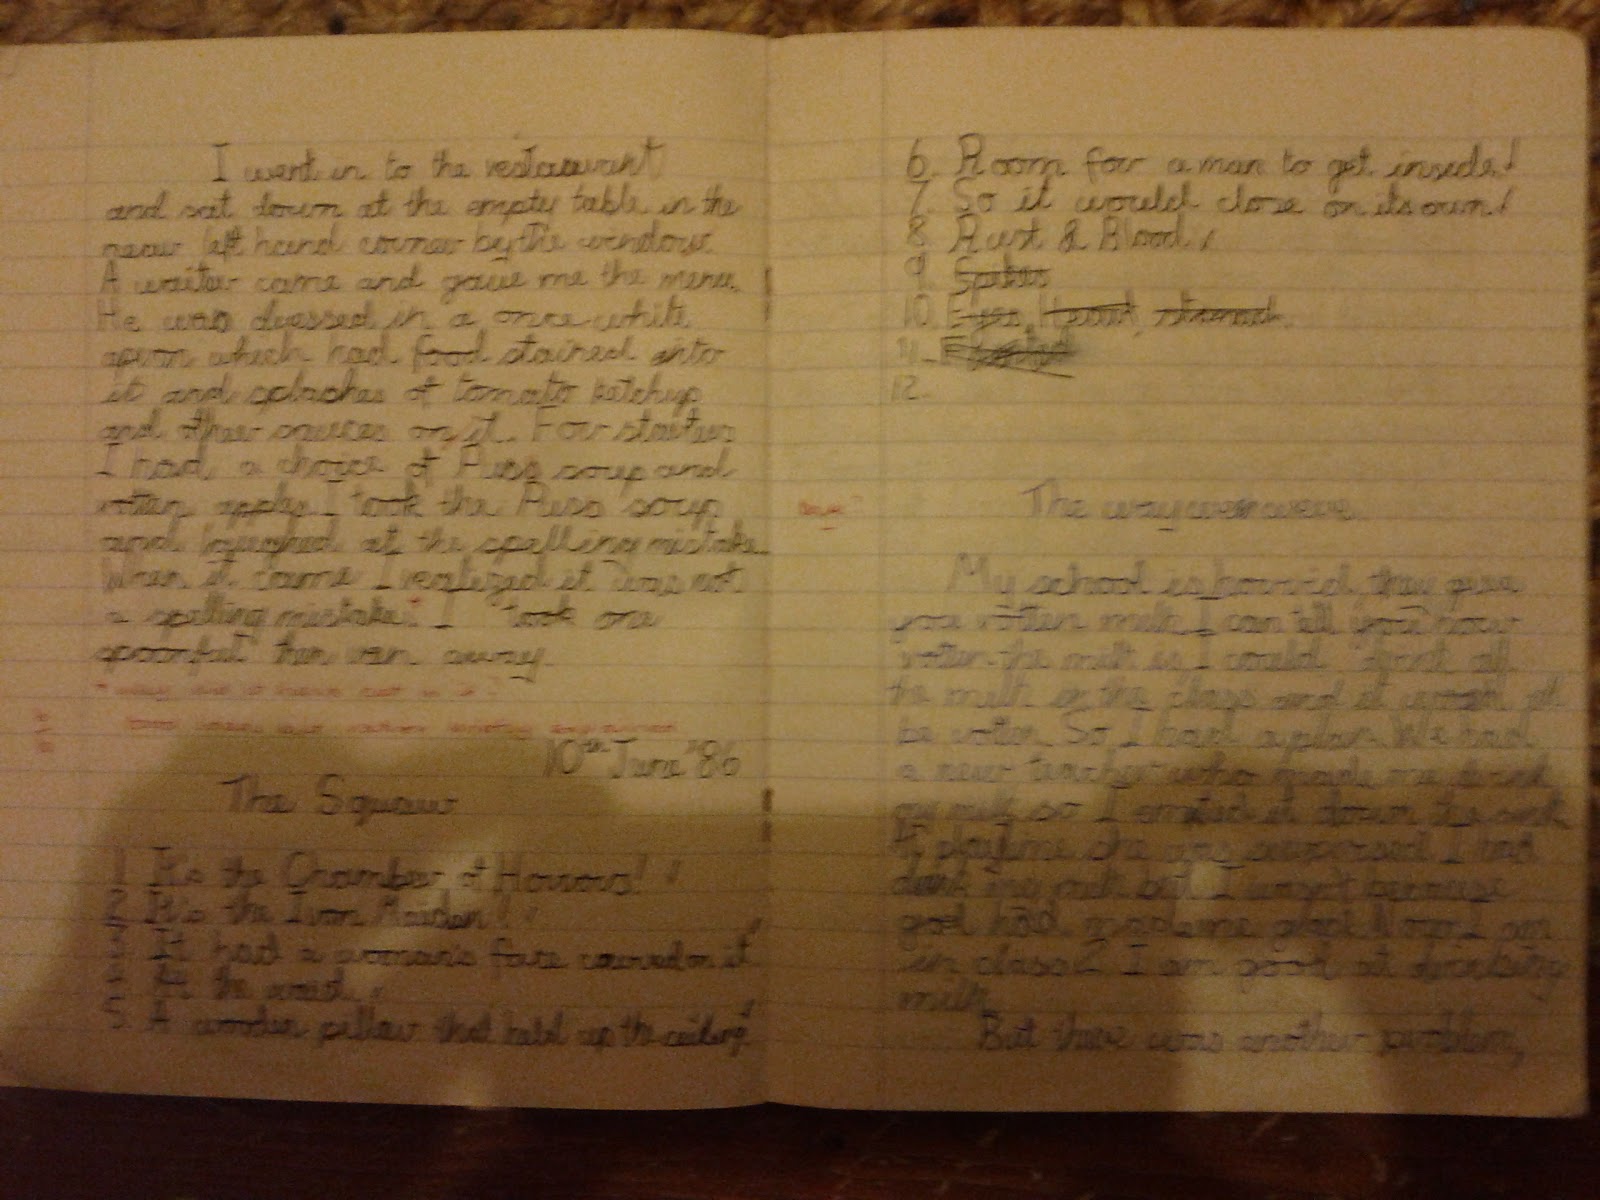 I went in to the restauraunt
and sat down at the empty table in the
near left hand corner by the window.
A waiter came and gave me the menu.
He was dressed in a once white
apron which had food stained into
it and splashes of tomato ketchup
and other sauces on it. For starters
I had a choice of Puss soup and
rotten apple. I took the Puss soup
and laughed at the spelling mistake.
When it came I realized it was not
a spelling mistake. I took one
spoonful then ran away.
10th June '86
The Squaw
1 It's the Chamber of Horrors!
2 It's the Iron Maiden!
3 It had a woman's face carved on it
4 At the waist
5. A wooden pillar that held up the ceiling
6. Room for a man to get inside!
7. So it would close on its own!
8 Rust & Blood
9. Spikes
10. Eyes, Heart, stomach.
11.
12.
The
My school is horrid they give
you rotten milk I can tell you how
rotten the milk is, I could all
the milk in the class and it
be rotten So I had a plan. We had
a new teacher who made me drink
my milk so I emptied it down the sink
At playtime she was I had
drunk my milk but I wasn't because
god had made me good Now I am
in class 2 I am good at drinking
milk.
But there was another problem,